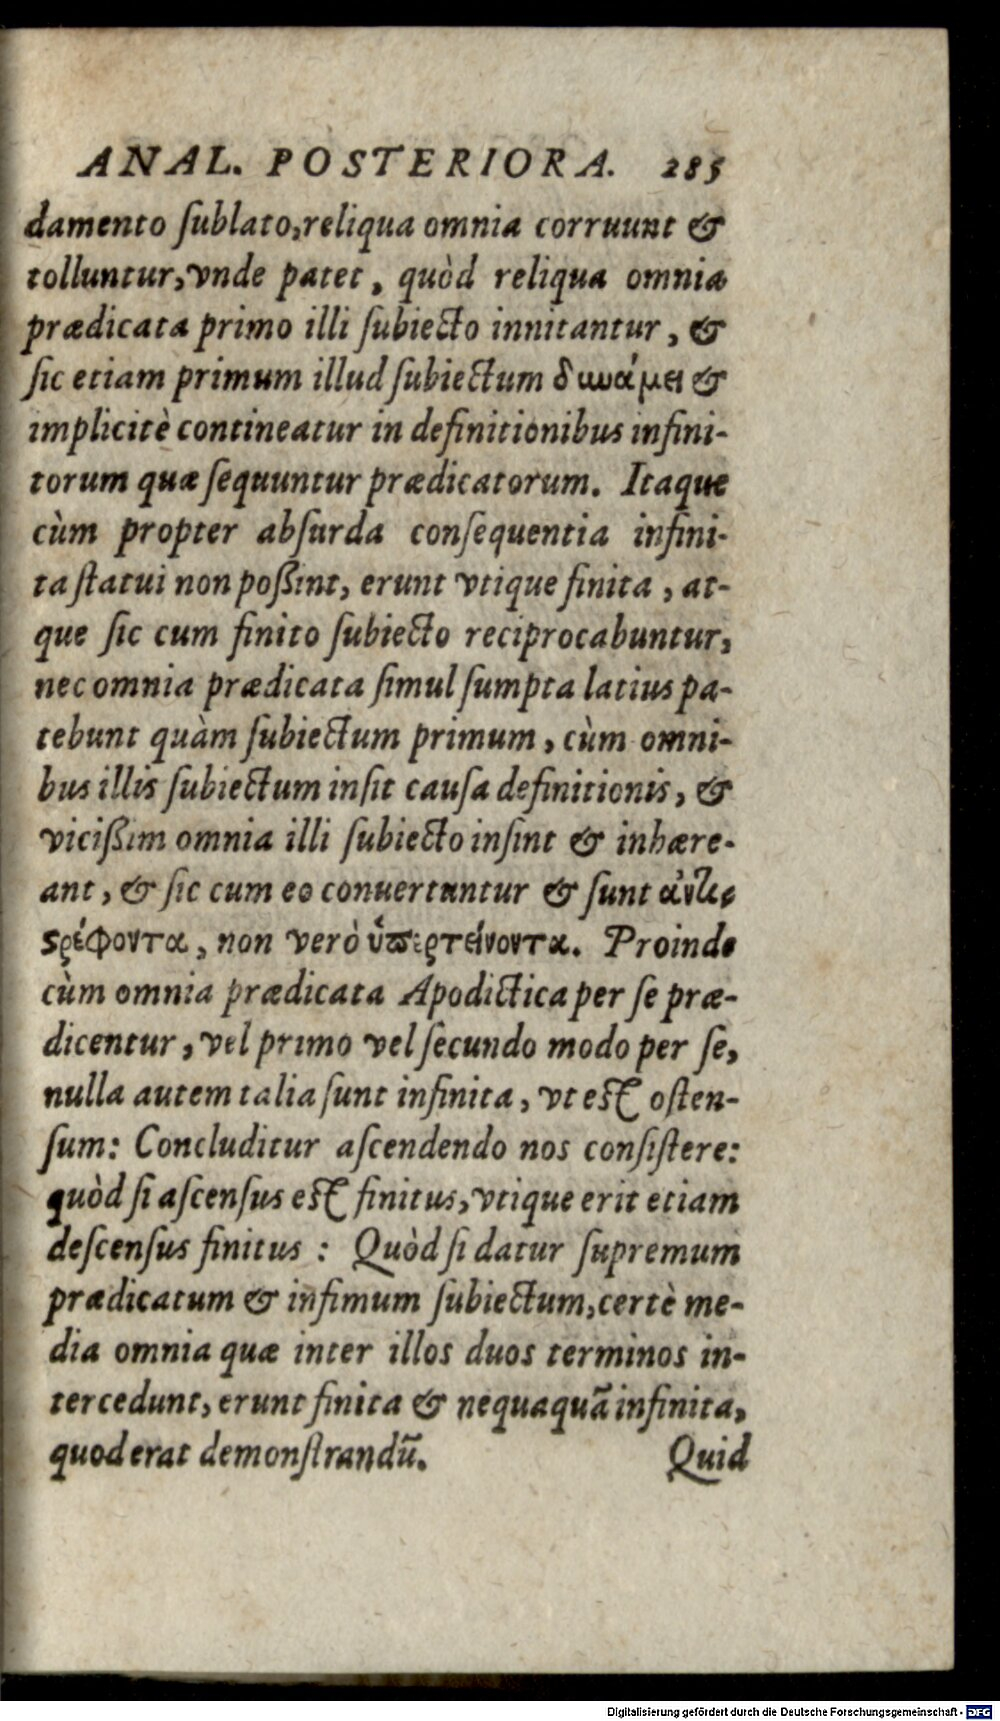 ANAL. POSTERIORA. 285
damento ſublato, reliqua omnia corruunt &
tolluntur, vnde patet, quòd reliqua omnia
prædicata primo illi ſubiecto innitantur, &
ſic etiam primum illud ſubiectum δυνάμει &
implicitè contineatur in definitionibus infini-
torum quæ ſequuntur prædicatorum. Itaque
cùm propter abſurda conſequentia infini-
ta ſtatui non poßint, erunt vtique finita, at-
que ſic cum finito ſubiecto reciprocabuntur,
nec omnia prædicata ſimul ſumpta latius pa-
tebunt quàm ſubiectum primum, cùm omni-
bus illis ſubiectum inſit cauſa definitionis, &
vicißim omnia illi ſubiecto inſint & inhære-
ant, & ſic cum eo conuertuntur & ſunt ἀντι-
ϛρέφοντα, non verò ὑπερτείνοντα. Proinde
cùm omnia prædicata Apodictica per ſe præ-
dicentur, vel primo vel ſecundo modo per ſe,
nulla autem talia ſunt infinita, vt eſt oſten-
ſum: Concluditur aſcendendo nos conſiſtere:
quòd ſi aſcenſus eſt finitus, vtique erit etiam
deſcenſus finitus: Quòd ſi datur ſupremum
prædicatum & infimum ſubiectum, certè me-
dia omnia quæ inter illos duos terminos in-
tercedunt, erunt finita & nequaquā infinita,
quod erat demonſtrandū. Quid
Digitalisierung gefördert durch die Deutsche Forschungsgemeinschaft - DFG